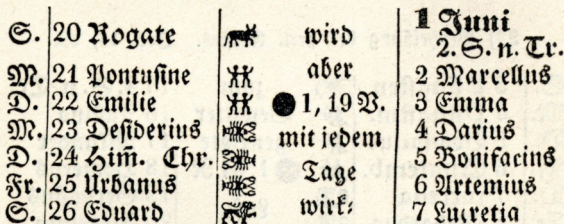 S. 20 Rogate wird 1 Juni
2. S. n. Tr.
M. 21 Pontusine aber 2 Marcellus
D. 22 Emilie ● 1, 19 V. 3 Emma
M. 23 Desiderius mit jedem 4 Darius
D. 24 Him̄. Chr. Tage 5 Bonifacius
Fr. 25 Urbanus wirk⸗ 6 Artemius
S. 26 Eduard 7 Lucretia